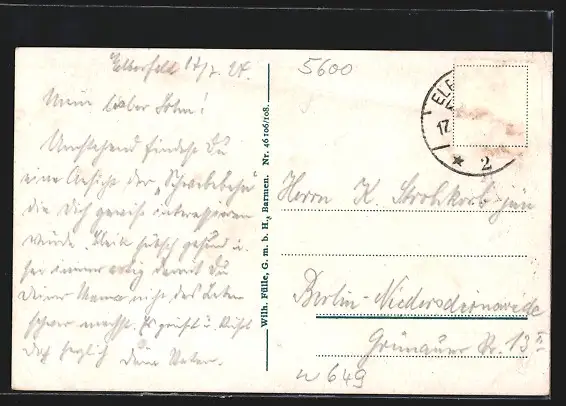 Elberfeld 17/7. 27.
Mein lieber Sohn!
Umstehend findest Du
eine Ansicht der „Schwebebahn"
die Dich gewiss interessieren
würde. Bleib hübsch gesund u.
sei immer artig damit Du
Deiner Mama nicht das Leben
schwer machst. Es grüßt u. küßt
Dich herzlich Dein Vater.
Wilh. Fülle, G. m. b. H., Barmen. Nr. 46106/108.
5600
ELB
17
* 2
Herrn K. Strohkorb jun
Berlin-Niederschöneweide
Grünauer Str. 13 II
649